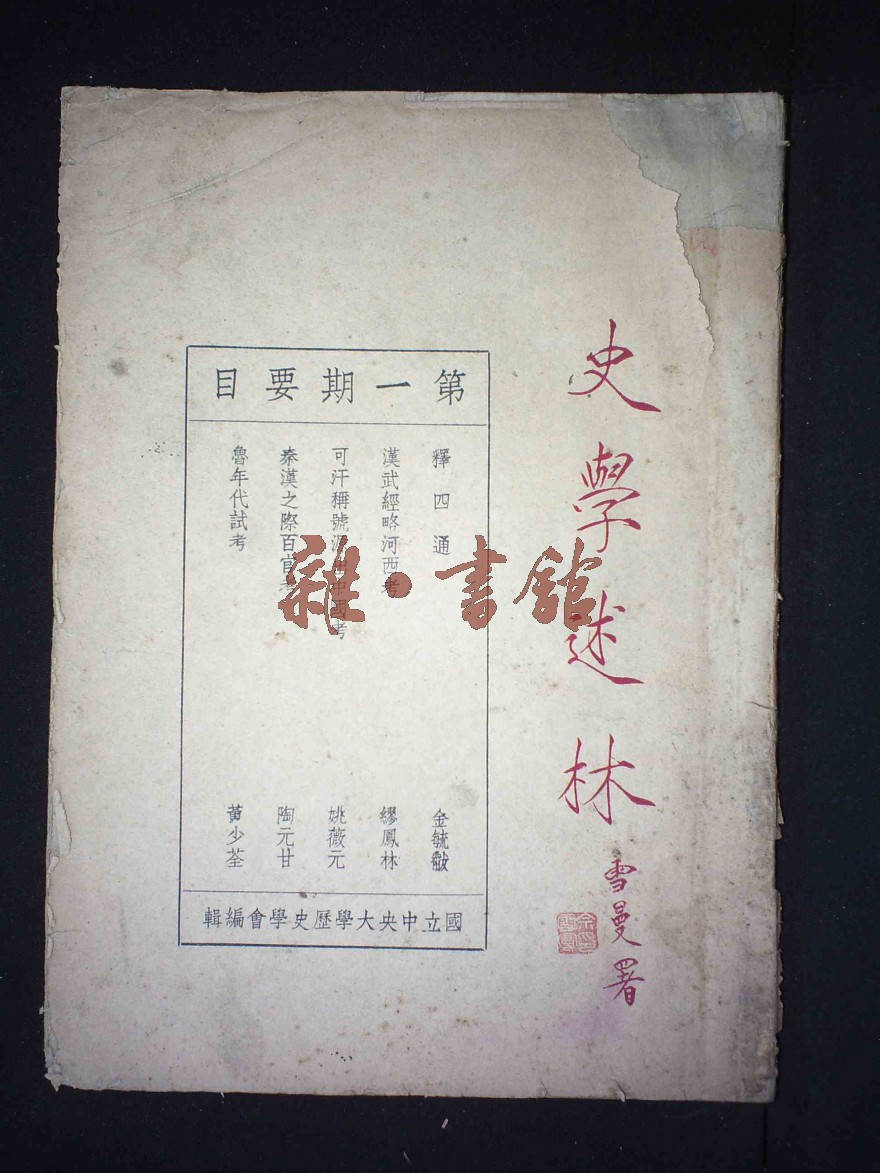 史學述林
雪曼署
第一期要目
釋四通
金毓黻
漢武經略河西考
繆鳳林
可汗稱號源出中國考
姚薇元
秦漢之際百官考
陶元甘
魯年代試考
黃少荃
國立中央大學歷史學會編輯
雜·書館